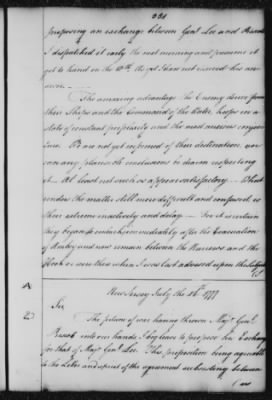 331
proposing an exchange between Genl. Lee and Prescott
I dispatched it early the next morning and presume it
got to hand on the 10th. As yet I have not received his an-
swer.
The amazing advantage the Enemy derive from
their Ships and the Command of the Water, keeps us in a
state of constant perplexity and the most anxious conjec-
ture. We are not yet informed of their destination, nor
can any plausible conclusions be drawn respecting
it. At least not such as appear satisfactory. What
renders the matter still more difficult and confused, is
their extreme inactivity and delay. For it is certain
they began to embark immediately after the Evacuation
of Amboy and now remain between the Narrows and the
Hook or were there when I was last advised upon the Subject
A
New Jersey July the 16th. 1777
Sir
The fortune of war having thrown Majr. Genl.
Prescott into our hands, I beg leave to propose his Exchange
for that of Majr. Genl. Lee. This proposition being agreeable
to the Letter and spirit of the agreement subsisting between